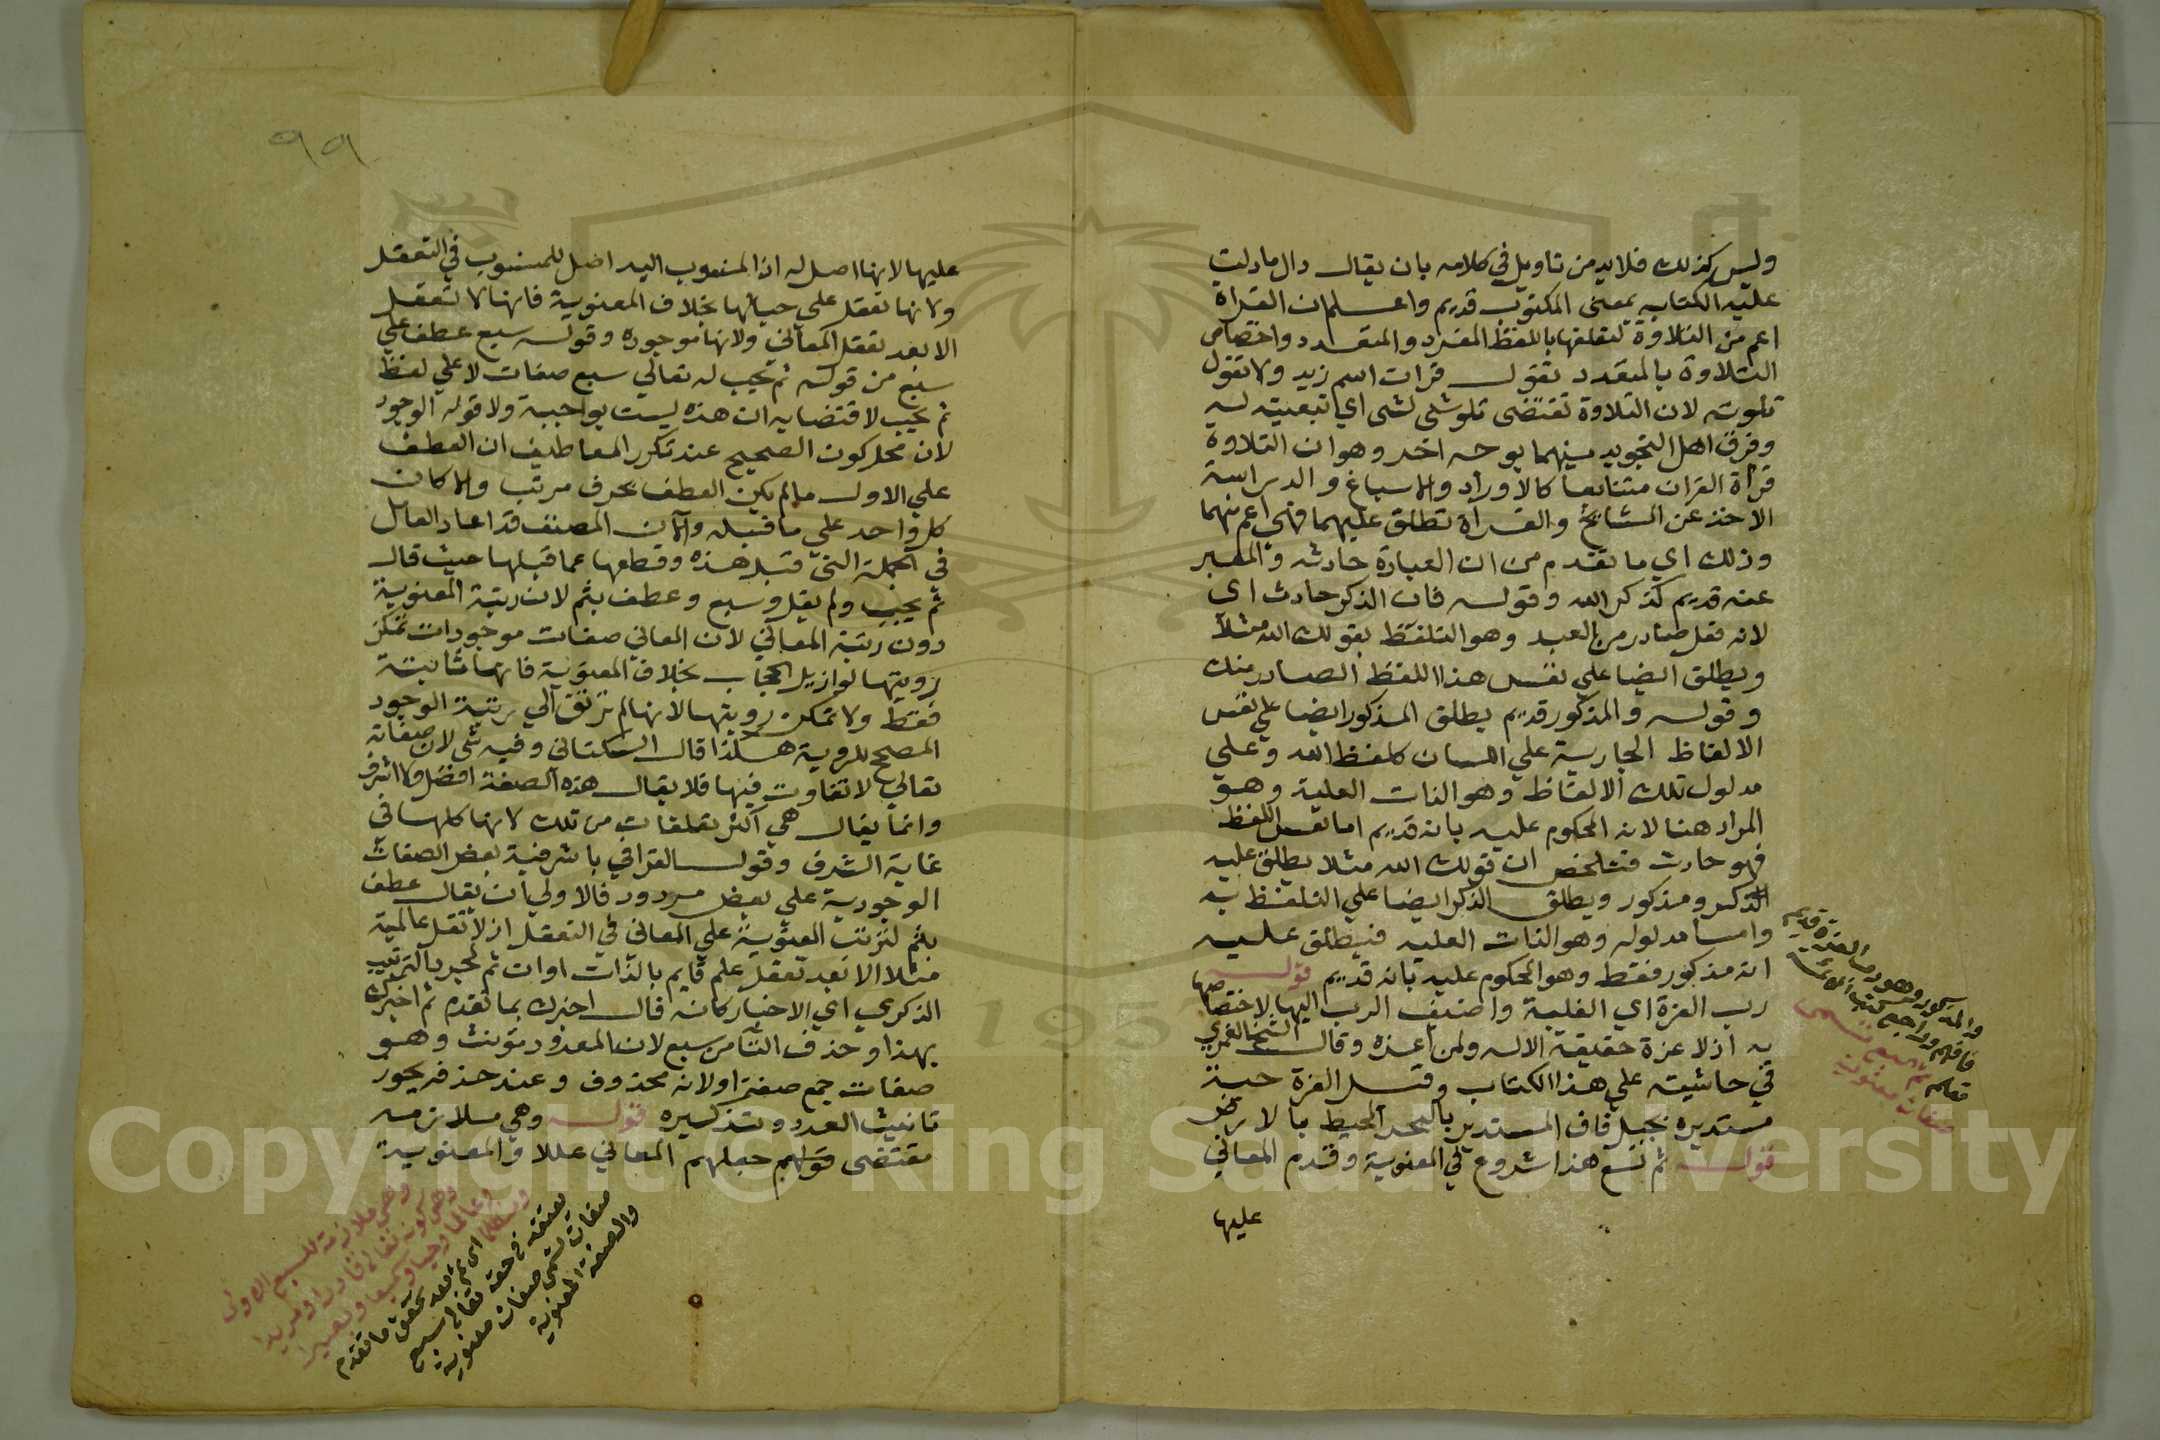 وليس كذلك فلابد من تاويل في كلامه بان يقال دال ما دلت
عليه الكتابه بمعنى المكتوب قديم واعلم ان القراة
اعم من التلاوة لتعلقها باللفظ المفرد والمتعدد واختصاص
التلاوة بالمتعدد تقول قرات اسم زيد ولا تقول
تلوته لان التلاوة تقتضى تلو شى لشى اي تبعيته له
وفرق اهل التجويد بينهما بوجه اخر وهو ان التلاوة
قراة القران متتابعا كالاوراد والاسباع والدراسة
الاخذ عن المشايخ والقراة تطلق عليهما فهي اعم منهما
وذلك اي ما تقدم من ان العبارة حادثه والمعبر
عنه قديم كذكر الله وقوله فان الذكر حادث اي
لانه فعل صادر من العبد وهو التلفظ بقولك الله مثلا
ويطلق ايضا علي نفس هذا اللفظ الصادر منك
وقوله والمذكور قديم يطلق المذكور ايضا علي نفس
الالفاظ الجارية علي اللسان كلفظ الله وعلي
مدلول تلك الالفاظ وهو الذات العلية وهو
المراد هنا لانه المحكوم عليه بانه قديم اما نفس اللفظ
فهو حادث فتلخص ان قولك الله مثلا يطلق عليه
الذكر ومذكور ويطلق الذكر ايضا علي التلفظ به
واما مدلوله وهو الذات العليه فيطلق عليه
انه مذكور فقط وهو المحكوم عليه بانه قديم قوله
رب العزة اي الغلبة واضيف الرب اليها لاختصاصها
به اذ لا عزة حقيقة الا له ولمن اعزه وقال الشيخ الغمري
في حاشيته علي هذا الكتاب وقيل العزة حية
مستديرة بجبل قاف المستدير بالبحر المحيط بالارض
قوله ثم سبع هذا شروع في المعنوية وقدم المعاني
عليها
والمذكور وهو رب العزة قديم
فافهم وراجع كتب الائمة
تعلم ثم سبع تسمى
صفات معنوية
٩٩
عليها لانها اصل له اذ المنسوب اليه اصل للمنسوب في التعقل
ولانها تعقل علي حيالها بخلاف المعنوية فانها لا تعقل
الا بعد تعقل المعاني ولانها موجودة وقوله سبع عطف علي
سبع من قوله ثم يجب له تعالي سبع صفات لا علي لفظ
ثم يجب لاقتضايه ان هذه ليست بواجبة ولا قوله الوجود
لان محل كون الصحيح عند تكرر المعاطيف ان العطف
علي الاول ما لم يكن العطف بحرف مرتب والا كان
كل واحد علي ما قبله والآن المصنف قد اعاد العامل
في الجملة التي قبل هذه وقطعها عما قبلها حيث قال
ثم يجب ولم يقل وسبع وعطف بثم لان رتبة المعنوية
دون رتبة المعاني لان المعاني صفات موجودات تمكن
رويتها لو ازيل الحجاب بخلاف المعنوية فانها ثابتة
فقط ولا تمكن رويتها لانها لم ترتق الي رتبة الوجود
المصحح للروية هكذا قال السكتاني وفيه شي لان صفاته
تعالي لا تفاوت فيها فلا يقال هذه الصفة افضل ولا اشرف
وانما يقال هي اكثر تعلقات من تلك لانها كلها في
غاية الشرف وقول القرافي باشرفية بعض الصفات
الوجودية علي بعض مردود فالاولي ان يقال عطف
بثم لترتب المعنوية علي المعاني في التعقل اذ لا تعقل عالمية
مثلا الا بعد تعقل علم قايم بالذات او ان ثم لمجرد الترتيب
الذكري اي الاخبار كانه قال اخبرك بما تقدم ثم اخبرك
بهذا وحذف التا من سبع لان المعدود مونث وهو
صفات جمع صفة او لانه محذوف وعند حذفه يجوز
تانيث العدد وتذكيره قوله وهي ملازمه
مقتضى قولهم جعلهم المعاني عللا والمعنوية
وهي ملازمة للسبع الاولى
وهي كونه تعالى قادرا ومريدا
وعالما وحيا وسميعا وبصيرا
ومتكلما اي ثم بعد تحقق ما تقدم
يعتقد في حقه تعالى سبع
صفات تسمى صفات معنوية
والصفة المعنوية